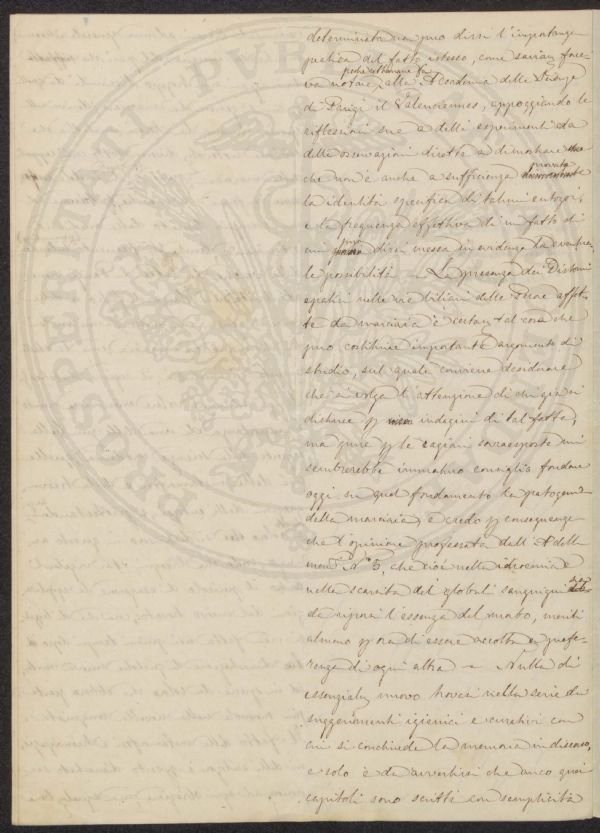 determinata ne può dirsi l'importanza
pratica del fatto istesso, come saviam. face-
poche settimane fa
va notare alla Accademia delle Scienze
di Parigi il Valenciennes, appoggiando le
riflessioni sue e delli esperimenti e da
delle osservazioni dirette a dimostrare
che non è anche a sufficienza provata
la identità specifica di taluni entozoi,
e la frequenza effettiva di un fatto di
cui può dirsi messa in evidenza la sempli-
le possibilità — La presenza dei Distomi
epatici nelle vie biliari delle Pecore affet-
te da marciaia è certam. tal cosa che
può costituire importante argomento di
studio, sul quale conviene desiderare
che si volga l'attenzione di chi già si
distinse p indagini di tal fatta,
ma pure p le ragioni sovraesposte mi
sembrerebbe immaturo consiglio fondare
oggi su quel fondamento la patogenia
della marciaia, e credo p conseguenza
che l'opinione professata dall' A. della
mem. N° 5, che cioè nella idroemia e
nella scarsità dei globuli sanguigni
da riporsi l'essenza del morbo, meriti
almeno p ora di essere accolta a prefe-
renza di ogni altra — Nulla di
essenzialm. nuovo havvi nella serie di
suggerimenti igienici e curativi con
cui si conchiude la memoria in discorso,
e solo è da avvertirsi che anco quei
capitoli sono scritti con semplicità